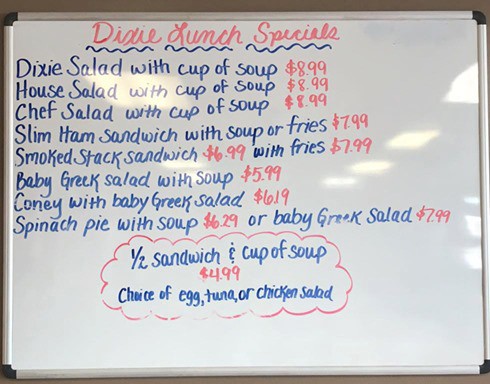 Dixie Lunch Specials
Dixie Salad with cup of soup $8.99
House Salad with cup of soup $8.99
Chef Salad with cup of soup $8.99
Slim Ham sandwich with soup or fries $7.99
Smoked Stack sandwich $6.99 with fries $7.99
Baby Greek salad with soup $5.99
Coney with baby Greek salad $6.19
Spinach pie with soup $6.29 or baby Greek salad $7.99
1/2 sandwich & cup of soup
$4.99
Choice of egg, tuna, or chicken salad